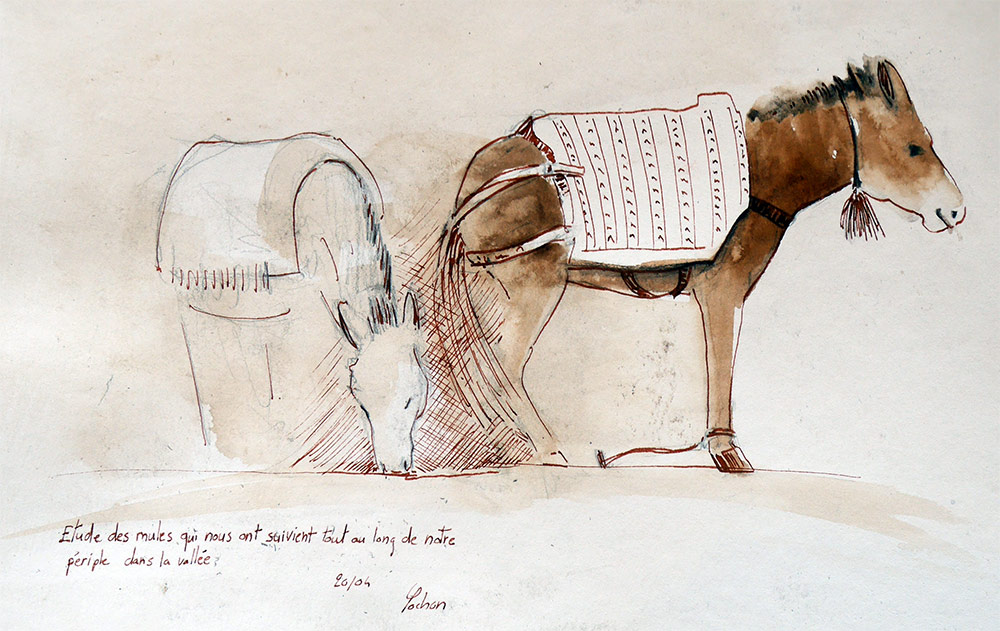 Etude des mules qui nous ont suivient tout au long de notre
périple dans la vallée.
20/04
Pochon